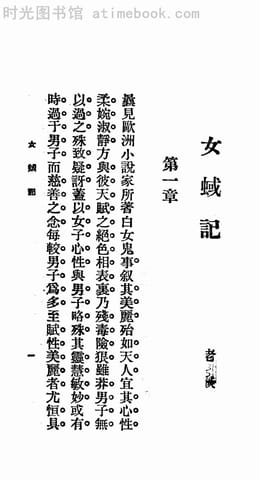 时光图书馆 - atimebook.com
女蜮記
第一章
曩見歐洲小說家所著白女鬼事叙其美麗殆如天人宜其心性
柔婉淑靜方與彼天賦之絕色相表裏乃殘毒險狠雖莽男子無
以過之殊致疑訝蓋以女子心性與男子略殊其靈慧敏妙或有
時過于男子而慈善之念每較男子爲多至賦性美麗者尤恒具
女蜮記
一